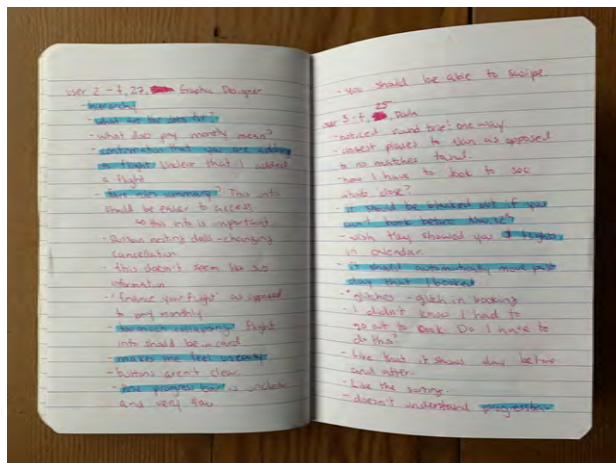 user 2 - f, 27, Graphic Designer
- hierarchy
- what are the dots for?
- what does pay monthly mean?
- confirmation that you are adding
a flight. Unclear that I added
a flight
- fare rules summary? This info
should be easier to access.
this info is important.
- Russian nesting dolls - changing
cancellation
- this doesn't seem like
information
- "finance your flight" as opposed
to pay monthly
- too much wrapping. flight
info should be in a card
- makes me feel uneasy
- buttons aren't clear.
- progress bar is unclear
and very
- you should be able to swipe.
25
user 3 - f, Data
- noticed round trip one way.
- closest places to as opposed
to no matches found.
- now I have to look to see
what's close?
- it should be blocked out if you
can't book before
- wish they showed you
in calendar.
- it should automatically move past
day that I booked
- "glitches - glitch in booking
- I didn't know I had to
go out to book. Do I have to
do this?
- like that it shows day before
and after.
- like the sorting.
- doesn't understand progression